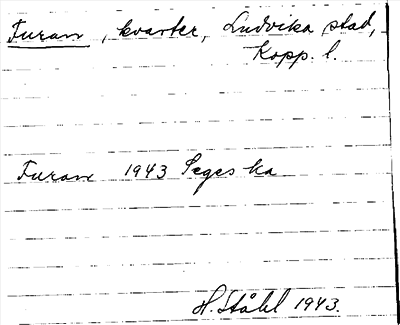 Furan, kvarter, Ludvika stad,
Kopp. l.
Furan 1943 Seges ka
H. Ståhl 1943.